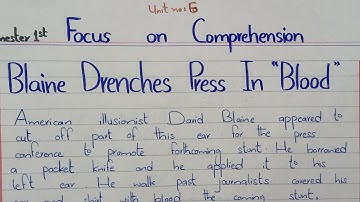 Unit no: 6
mester 1st Focus on Comprehension
Blaine Drenches Press In "Blood"
American illusionist David Blaine appeared to
cut off part of this ear for the press
conference to promote forthcoming stunt. He borrowed
a pocket knife and he applied it to his
left ear. He walk past journalists covered his
and shirt with blood the coming stunt.